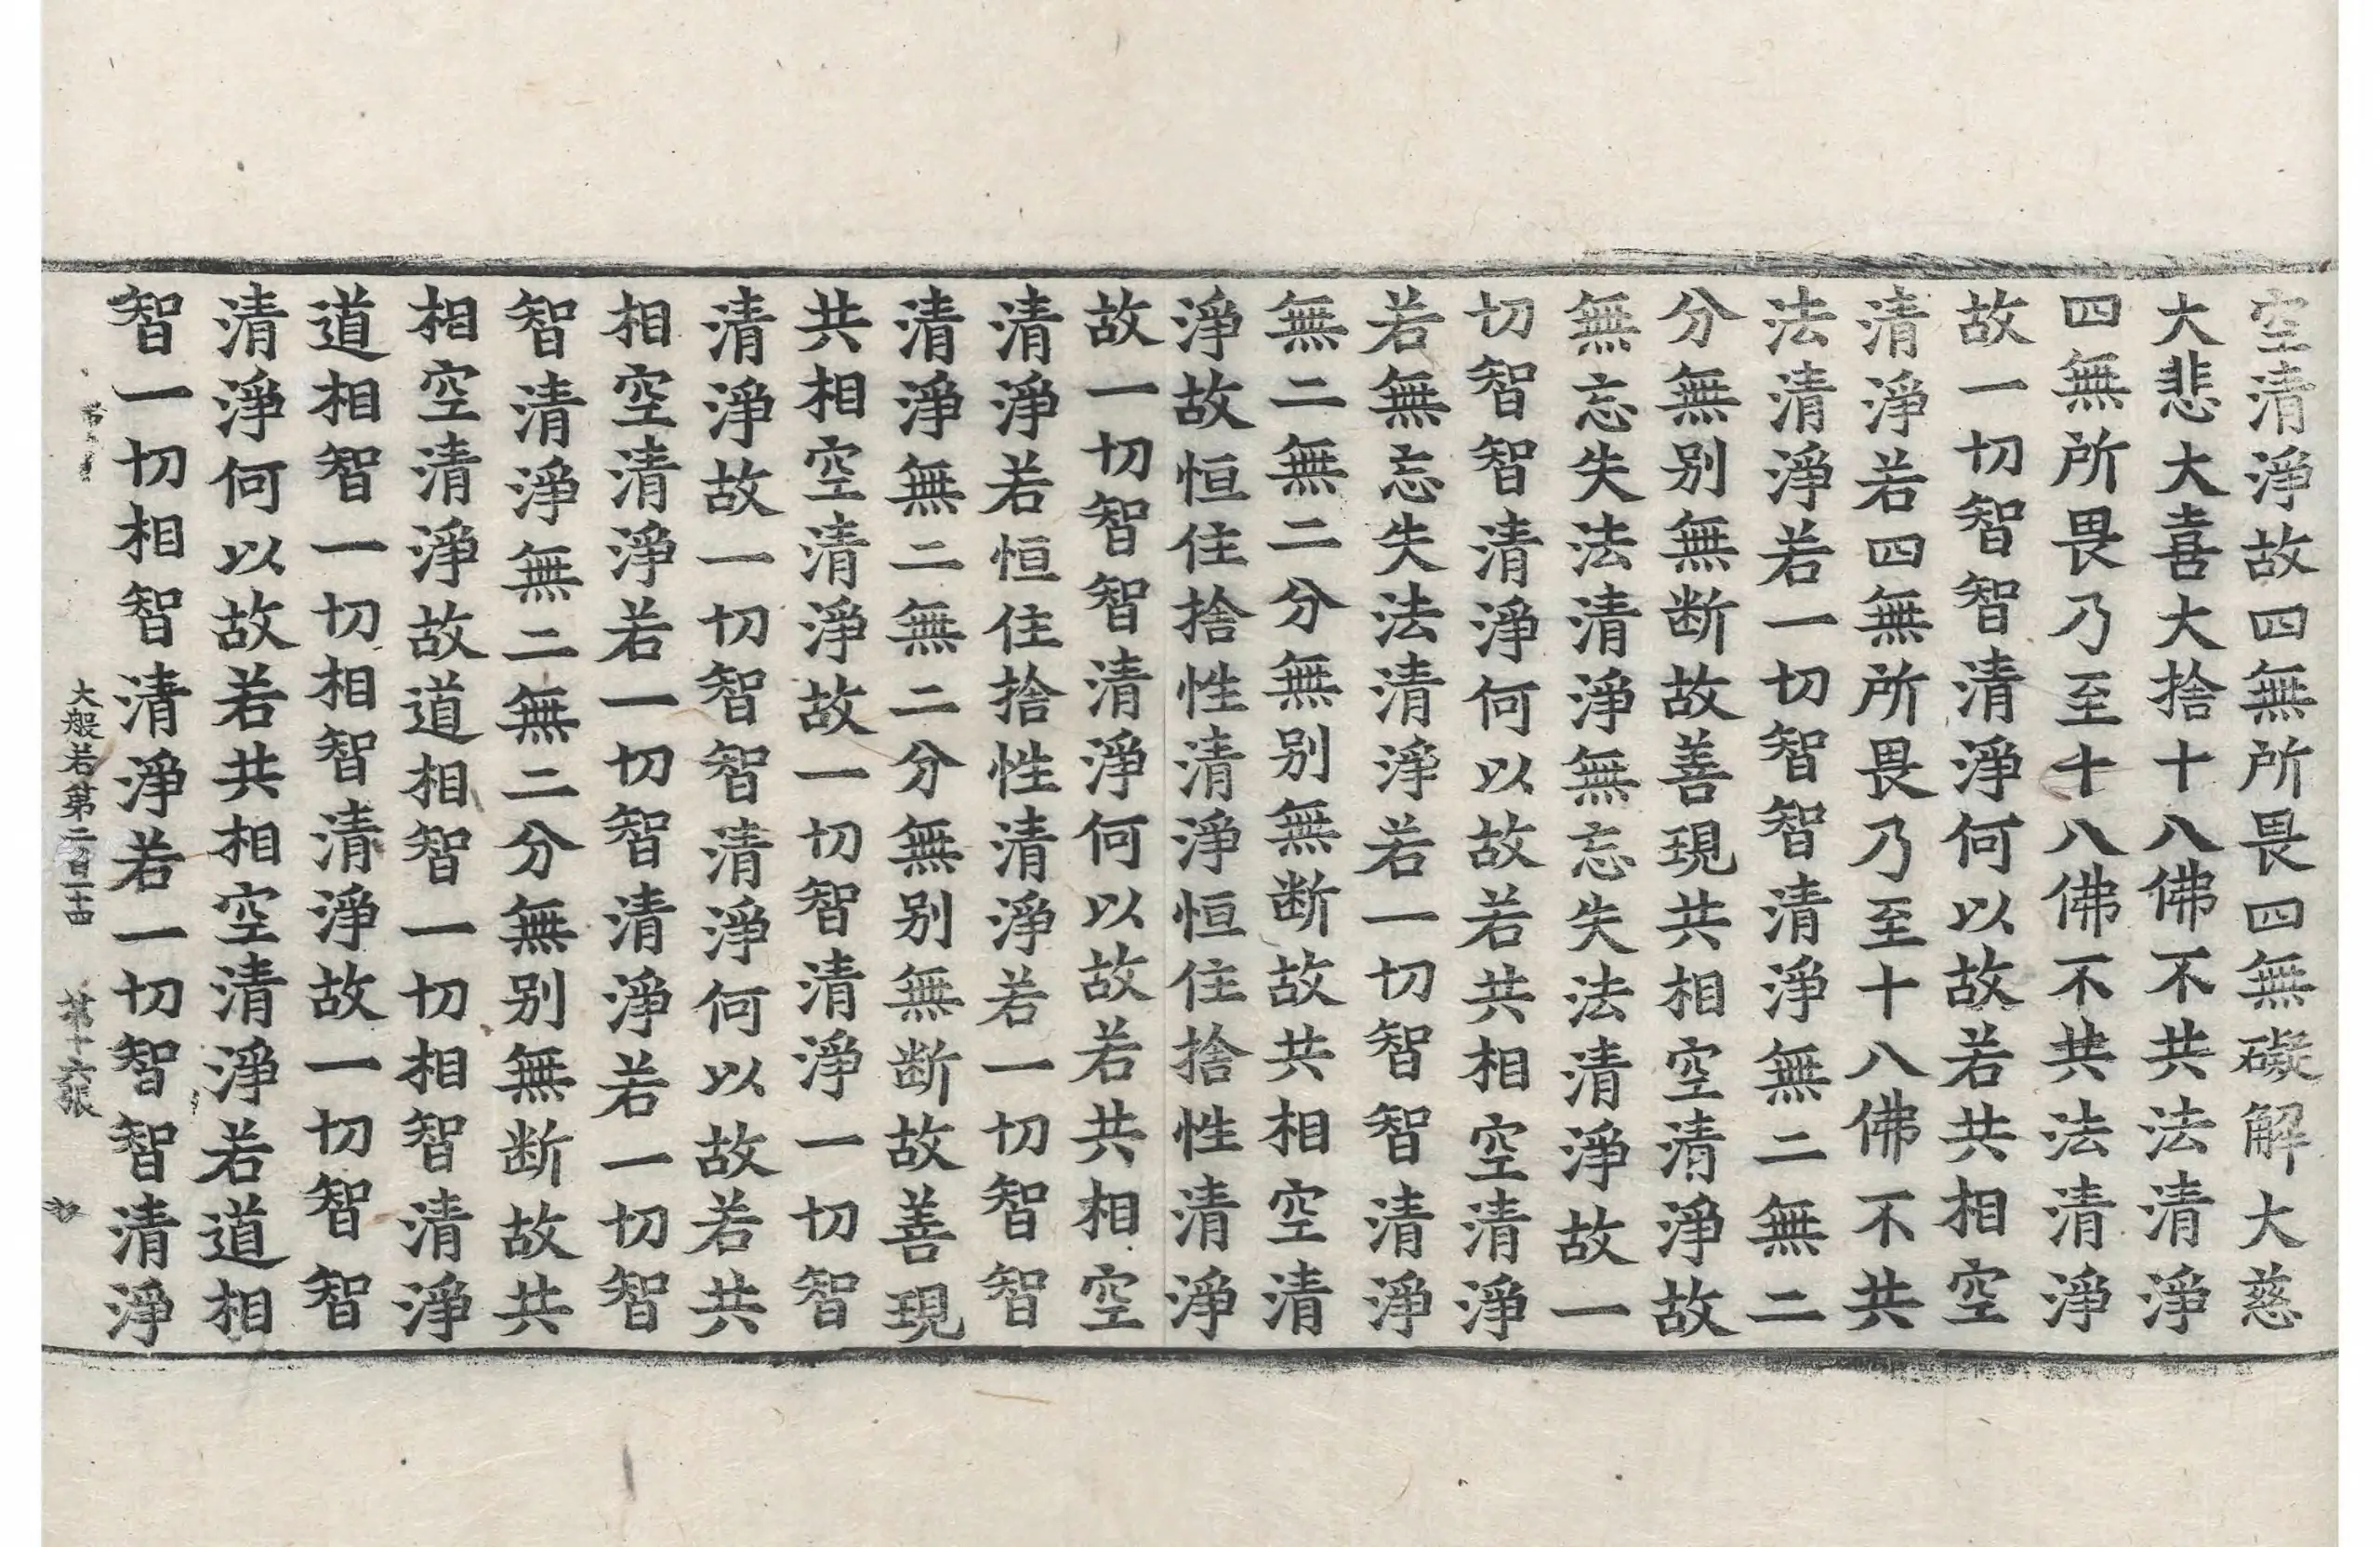 空清淨故四無所畏四無礙解大慈
大悲大喜大捨十八佛不共法清淨
四無所畏乃至十八佛不共法清淨
故一切智智清淨何以故若共相空
清淨若四無所畏乃至十八佛不共
法清淨若一切智智清淨無二無二
分無别無断故善現共相空清淨故
無忘失法清淨無忘失法清淨故一
切智智清淨何以故若共相空清淨
若無忘失法清淨若一切智智清淨
無二無二分無别無断故共相空清
淨故恒住捨性清淨恒住捨性清淨
故一切智智清淨何以故若共相空
清淨若恒住捨性清淨若一切智智
清淨無二無二分無别無断故善現
共相空清淨故一切智清淨一切智
清淨故一切智智清淨何以故若共
相空清淨若一切智清淨若一切智
智清淨無二無二分無别無断故共
相空清淨故道相智一切相智清淨
道相智一切相智清淨故一切智智
清淨何以故若共相空清淨若道相
智一切相智清淨若一切智智清淨
大般若第二百二十四 第十六張